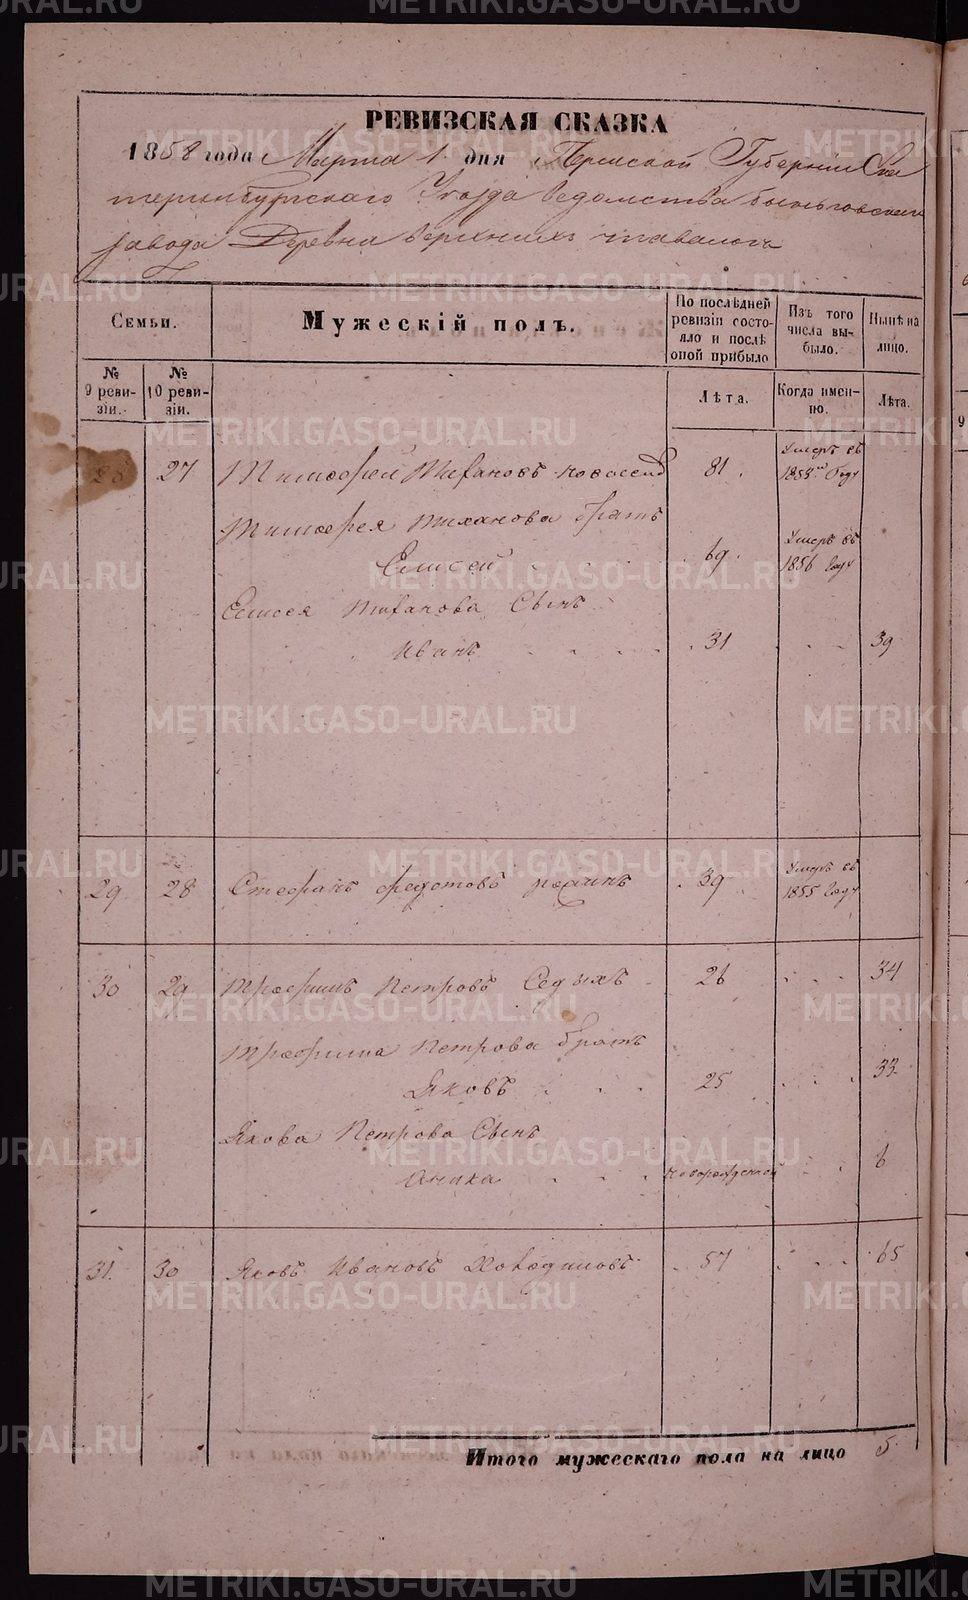 РЕВИЗСКАЯ СКАЗКА
1858 года Марта 1 дня Пермской Губернии Ека
теринбургскаго Уезда ведомства
завода Деревни верхнихъ тавологъ
Семьи.
Мужескій полъ.
По послѣдней ревизіи состояло и послѣ оной прибыло
Изъ того числа выбыло.
Нынѣ на лицо.
№ 9 ревизіи.
№ 10 ревизіи.
Лѣта.
Когда именно.
Лѣта.
28 27 Тимофей Тихановъ 81. Умеръ въ
185 Году
Тимофея тиханова братъ
Елисей 69. Умеръ въ
1856 году
Елисея тиханова Сынъ
Иванъ 31 39
29 28 Стефанъ федотовъ 39 Умеръ въ
1855 году
30 29 Трофимъ Петровъ Седыхъ 26 34
Трофима Петрова братъ
Яковъ 25 33
Якова Петрова Сынъ
Аника новорожденной 6
31. 30 Яковъ Ивановъ 57 65
Итого мужескаго пола на лицо 5
METRIKI.GASO-URAL.RU